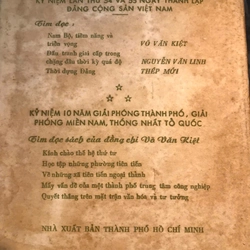 KỶ NIỆM LẦN THỨ 54 VÀ 55 NGÀY THÀNH LẬP
ĐẢNG CỘNG SẢN VIỆT NAM
Tìm đọc :
Nam Bộ, tiềm năng và
triển vọng VÕ VĂN KIỆT
Đấu tranh giai cấp trong
chặng đầu thời kỳ quá độ NGUYỄN VĂN LINH
Thời dựng Đảng THÉP MỚI
KỶ NIỆM 10 NĂM GIẢI PHÓNG THÀNH PHỐ, GIẢI
PHÓNG MIỀN NAM, THỐNG NHẤT TỔ QUỐC
Tìm đọc sách của đồng chí Võ Văn Kiệt
Kách chào thế hệ thứ tư
Học tập những phường tiên tiến
Về những xã tiên tiến ngoại thành
Mấy vấn đề của một thành phố trung tâm công nghiệp
Quyết thắng trên mặt trận văn hóa và tư tưởng
NHÀ XUẤT BẢN THÀNH PHỐ HỒ CHÍ MINH